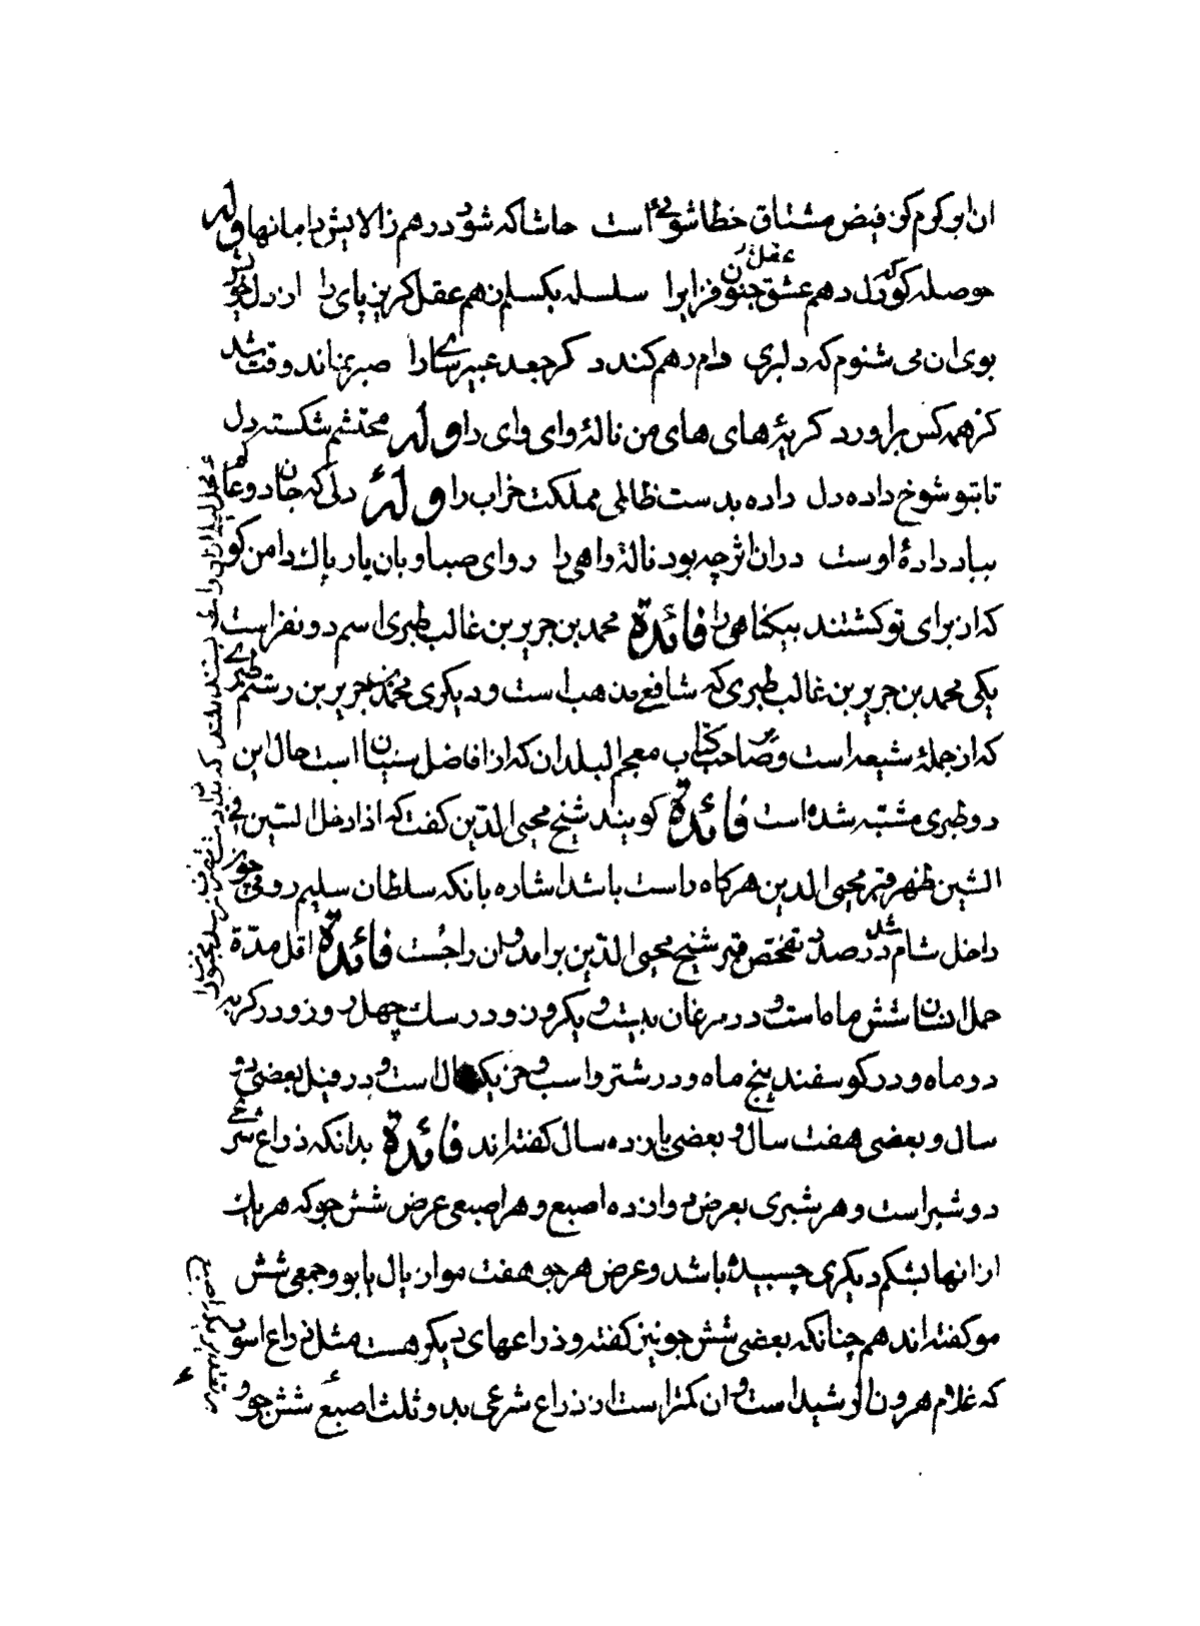 ان ابر کرم کز فیض مشتاق خطا شوئی است حاشا که شود درهم ز الایش دامانها و له
حوصله کو که دل دهم عشق جنون فزای را سلسله بکسلم ز هم عقل کریز پای را از دل خویش
بوی ان می شنوم که دلبری دام رهم کند د کر جعد عبیر سای را صبر نماند وقت شد
کز همه کس بر اورد کریهٔ های های من نالهٔ وای وای را و له محتشم شکسته دل
تا بتو شوخ داده دل داده بدست ظالمی مملکت خراب را و له دلی که جان دو عالم
بباد دادهٔ اوست در ان اثر چه بود نالهٔ واهی را روای صبا و بان یار پاک دامن کو
که از برای تو کشتند بیکناهی را فائدة محمد بن جریر بن غالب طبری اسم دو نفر است
یکی محمد بن جریر بن غالب طبری که شافعی مذهب است و دیکری محمد بن جریر بن رستم طبری
که از جملهٔ شیعه است و بر صاحب کتاب معجم البلدان که از افاضل سنیان است حال این
دو طبری مشتبه شده است فائدة کویند شیخ محیی الدین کفت که اذا دخل السین فی
الشین ظهر قبر محیی الدین هرکاه راست باشد اشاره بانکه سلطان سلیم رومی چون
داخل شام شد در صدد تفحص قبر شیخ محیی الدین برامد و ان را جست فائدة اقل مدّة
حمل انسان شش ماه است و در مرغان بیست و یکروز و در سک چهل روز و در کربه
دو ماه و در کوسفند پنج ماه و در شتر و اسب و خر یک سال است و در فیل بعضی دو
سال و بعضی هفت سال و بعضی یازده سال کفته اند فائدة بدانکه ذراع شرعی
دو شبر است و هر شبری بعرض دوازده اصبع و هر اصبعی عرض شش جو که هر یک
از انها بشکم دیکری چسبیده باشد و عرض هر جو هفت مو از یال یابو و جمعی شش
مو کفته اند هم چنانکه بعضی شش جو نیز کفته و ذراعهای دیکر هست مثل ذراع اسود
که غلام هرون الرشید است و ان کمتر است از ذراع شرعی بدو ثلث اصبع شش جو و